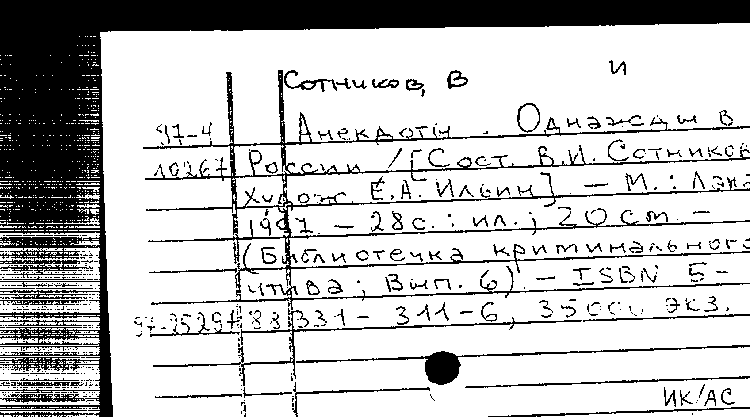 Сотников, В И
97-4 Анекдоты. Однажды в
10267 России / [Сост. В.И. Сотников
Худож Е.А. Ильин] — М.: Лана
1997 — 28 с.: ил.; 20 см. —
(Библиотечка криминального
чтива; Вып. 6) — ISBN 5-
97-25297 88331-311-6, 35000 экз.
ИК/АС